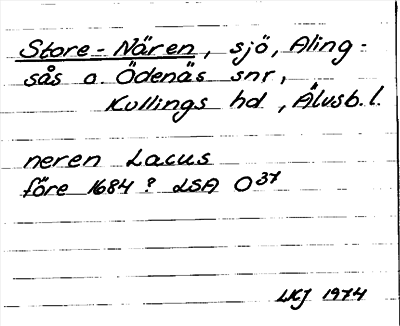 Store-Nären, sjö, Aling-
sås o. Ödenäs snr,
Kullings hd, Älvsb. l.
neren Lacus
före 1684? LSA O37
LKJ 1974